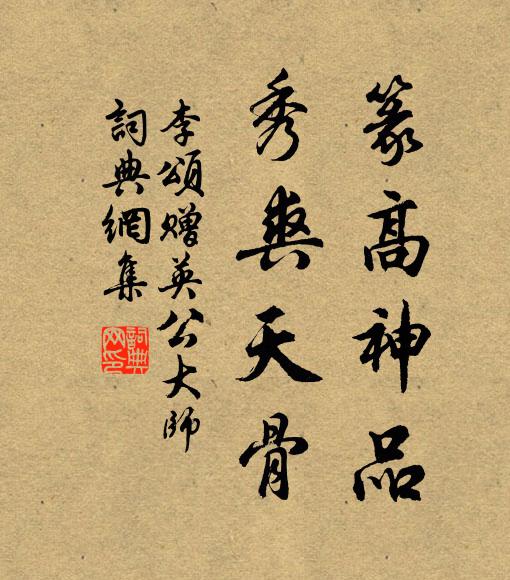 篆高神品
秀爽天骨
李頌贈英公大師
詞典網集
詞典
网印